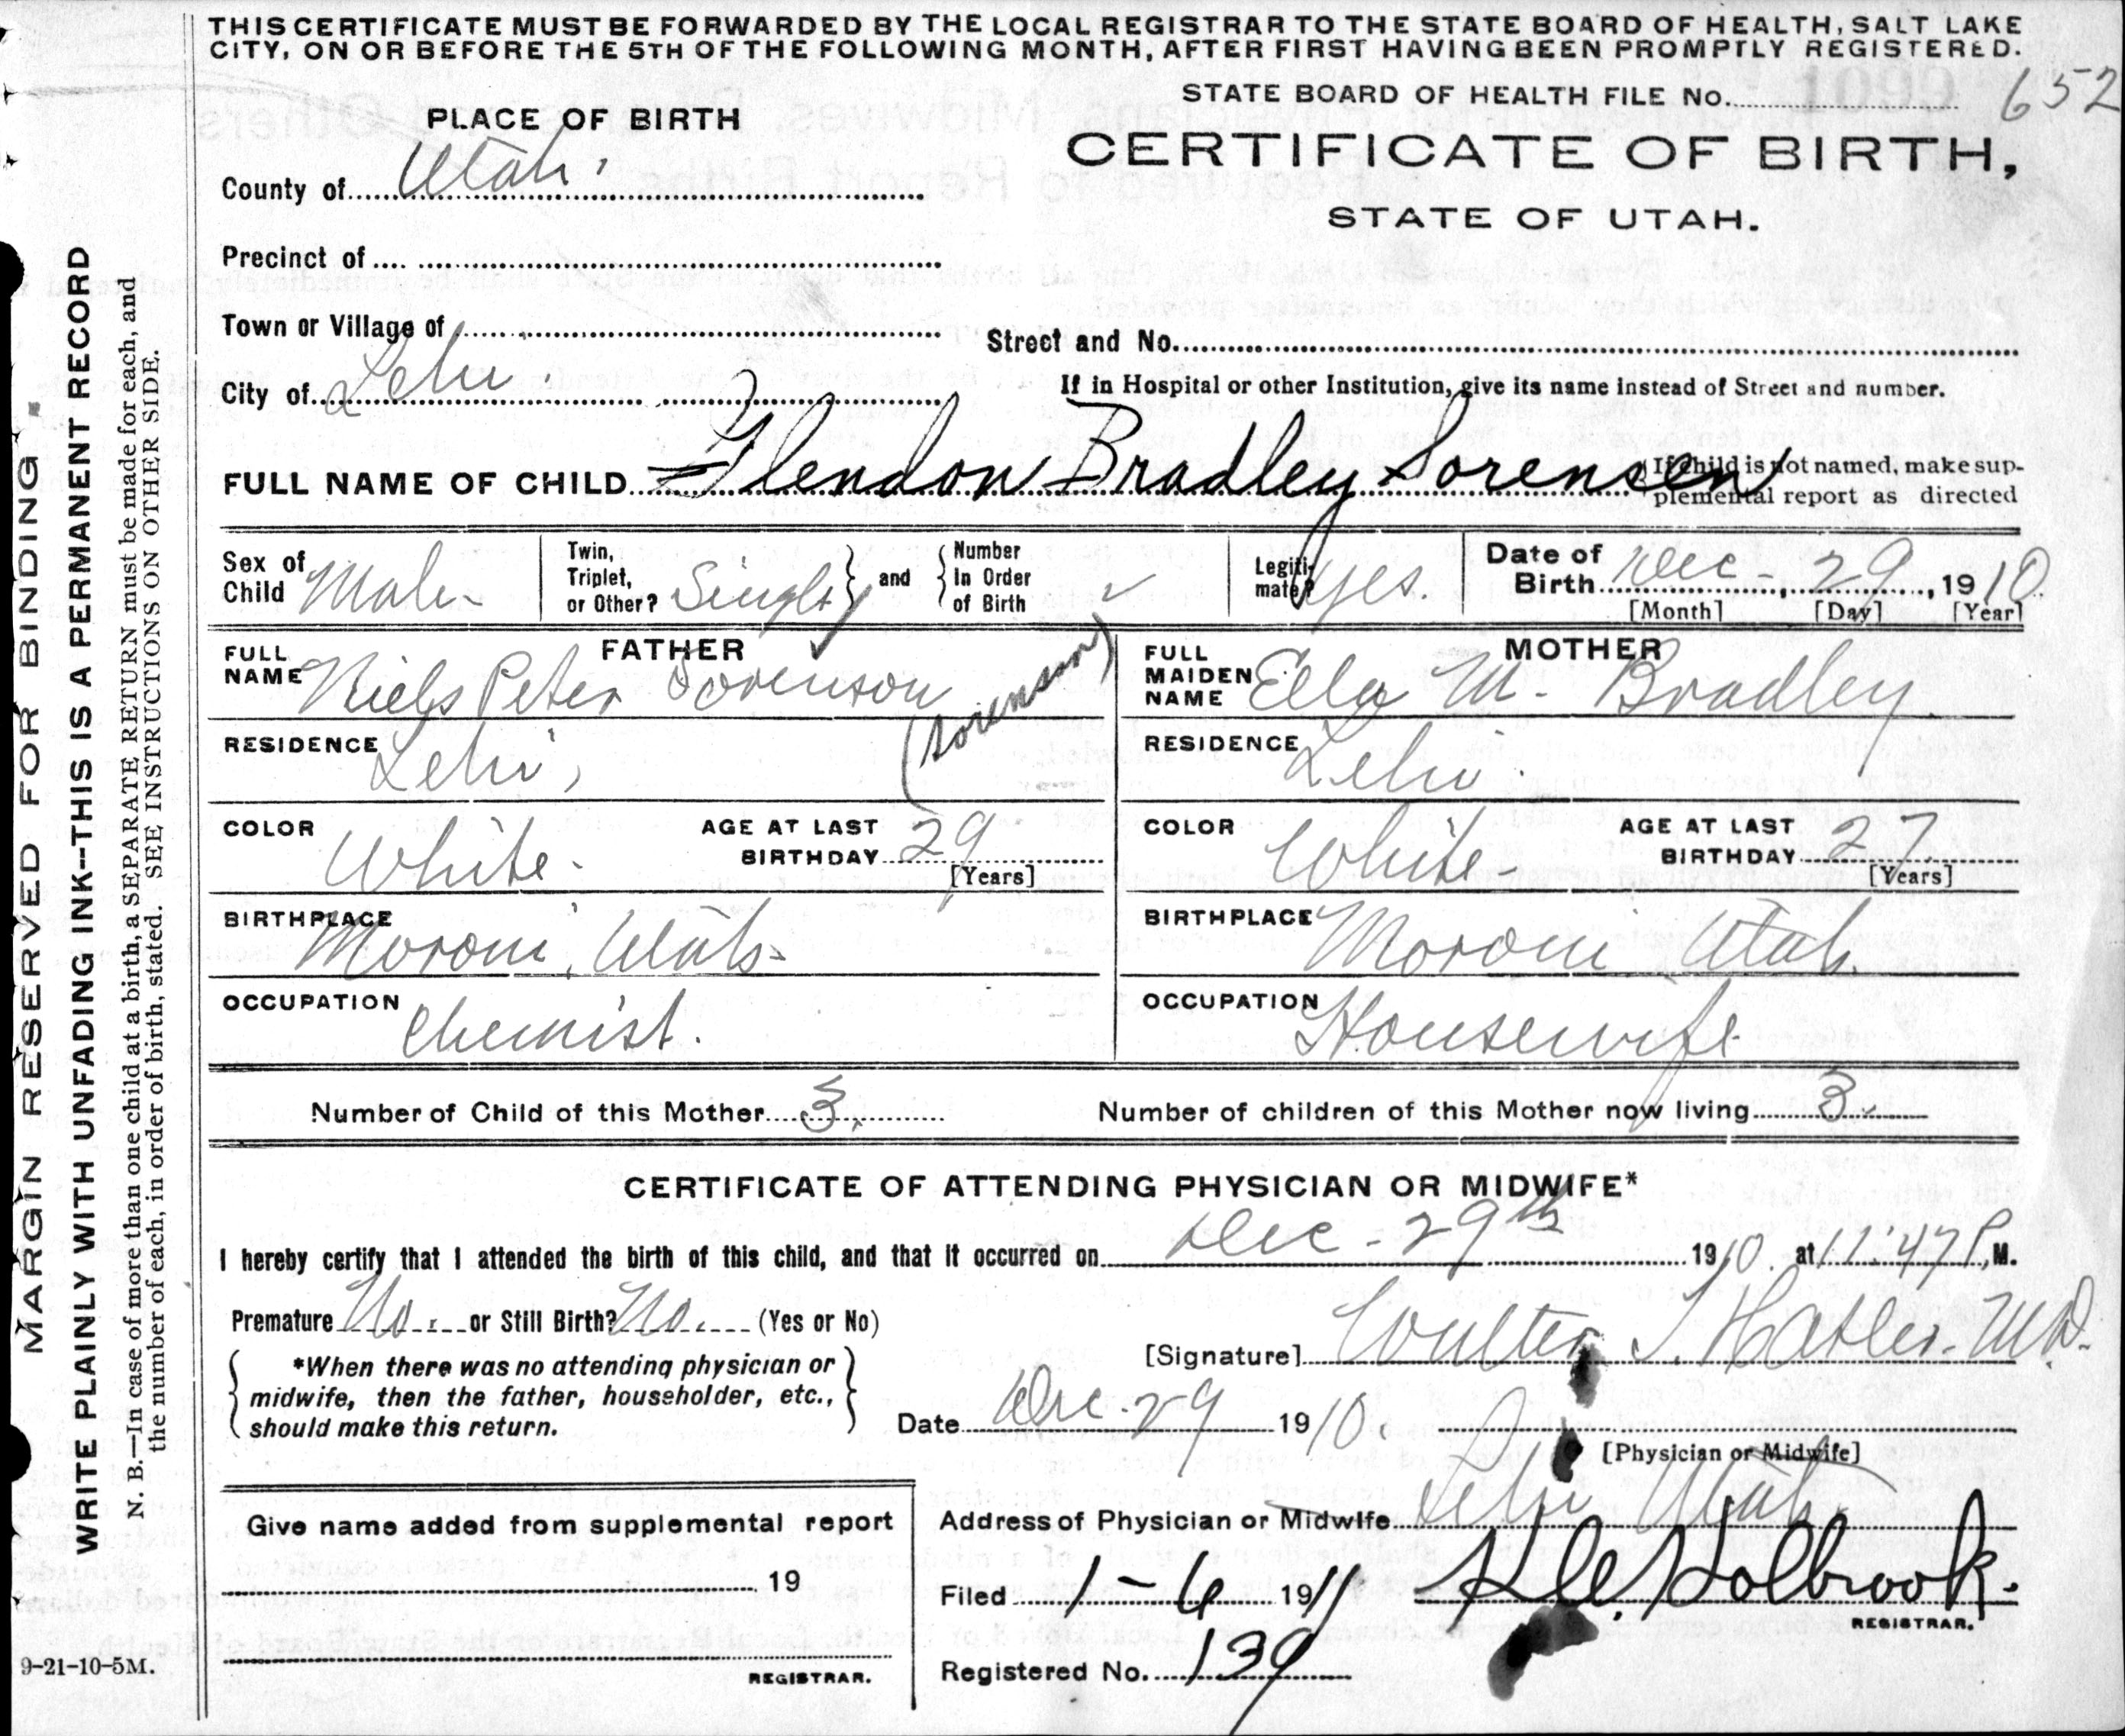 THIS CERTIFICATE MUST BE FORWARDED BY THE LOCAL REGISTRAR TO THE STATE BOARD OF HEALTH, SALT LAKE
CITY, ON OR BEFORE THE 5TH OF THE FOLLOWING MONTH, AFTER FIRST HAVING BEEN PROMPTLY REGISTERED.
STATE BOARD OF HEALTH FILE No. 652
PLACE OF BIRTH
CERTIFICATE OF BIRTH,
STATE OF UTAH.
County of Utah
Precinct of
Town or Village of
Street and No.
City of Lehi
If in Hospital or other Institution, give its name instead of Street and number.
FULL NAME OF CHILD Glendon Bradley Sorensen
If child is not named, make sup-
plemental report as directed
Sex of Child Male
Twin, Triplet, or Other? Single and Number In Order of Birth
Legiti-mate? Yes.
Date of Birth Dec - 29, 1910
[Month] [Day] [Year]
FATHER
FULL NAME Niels Peter Sorenson
(Sorensen)
RESIDENCE Lehi
COLOR White
AGE AT LAST BIRTHDAY 29
[Years]
BIRTHPLACE Moroni, Utah
OCCUPATION Chemist.
MOTHER
FULL MAIDEN NAME Ella M. Bradley
RESIDENCE Lehi
COLOR White
AGE AT LAST BIRTHDAY 27
[Years]
BIRTHPLACE Moroni Utah
OCCUPATION Housewife
Number of Child of this Mother 3
Number of children of this Mother now living 3
CERTIFICATE OF ATTENDING PHYSICIAN OR MIDWIFE*
I hereby certify that I attended the birth of this child, and that it occurred on Dec - 29th 1910 at 11:47 P.M.
Premature No. or Still Birth? No. (Yes or No)
*When there was no attending physician or
midwife, then the father, householder, etc.,
should make this return.
[Signature] M.D.
Date Dec. 29 1910.
[Physician or Midwife]
Address of Physician or Midwife Lehi Utah
Give name added from supplemental report
19
REGISTRAR.
Filed 1-6 1911 Holbrook.
REGISTRAR.
Registered No. 139
MARGIN RESERVED FOR BINDING
WRITE PLAINLY WITH UNFADING INK--THIS IS A PERMANENT RECORD
N. B.—In case of more than one child at a birth, a SEPARATE RETURN must be made for each, and
the number of each, in order of birth, stated. SEE INSTRUCTIONS ON OTHER SIDE.
9-21-10-5M.